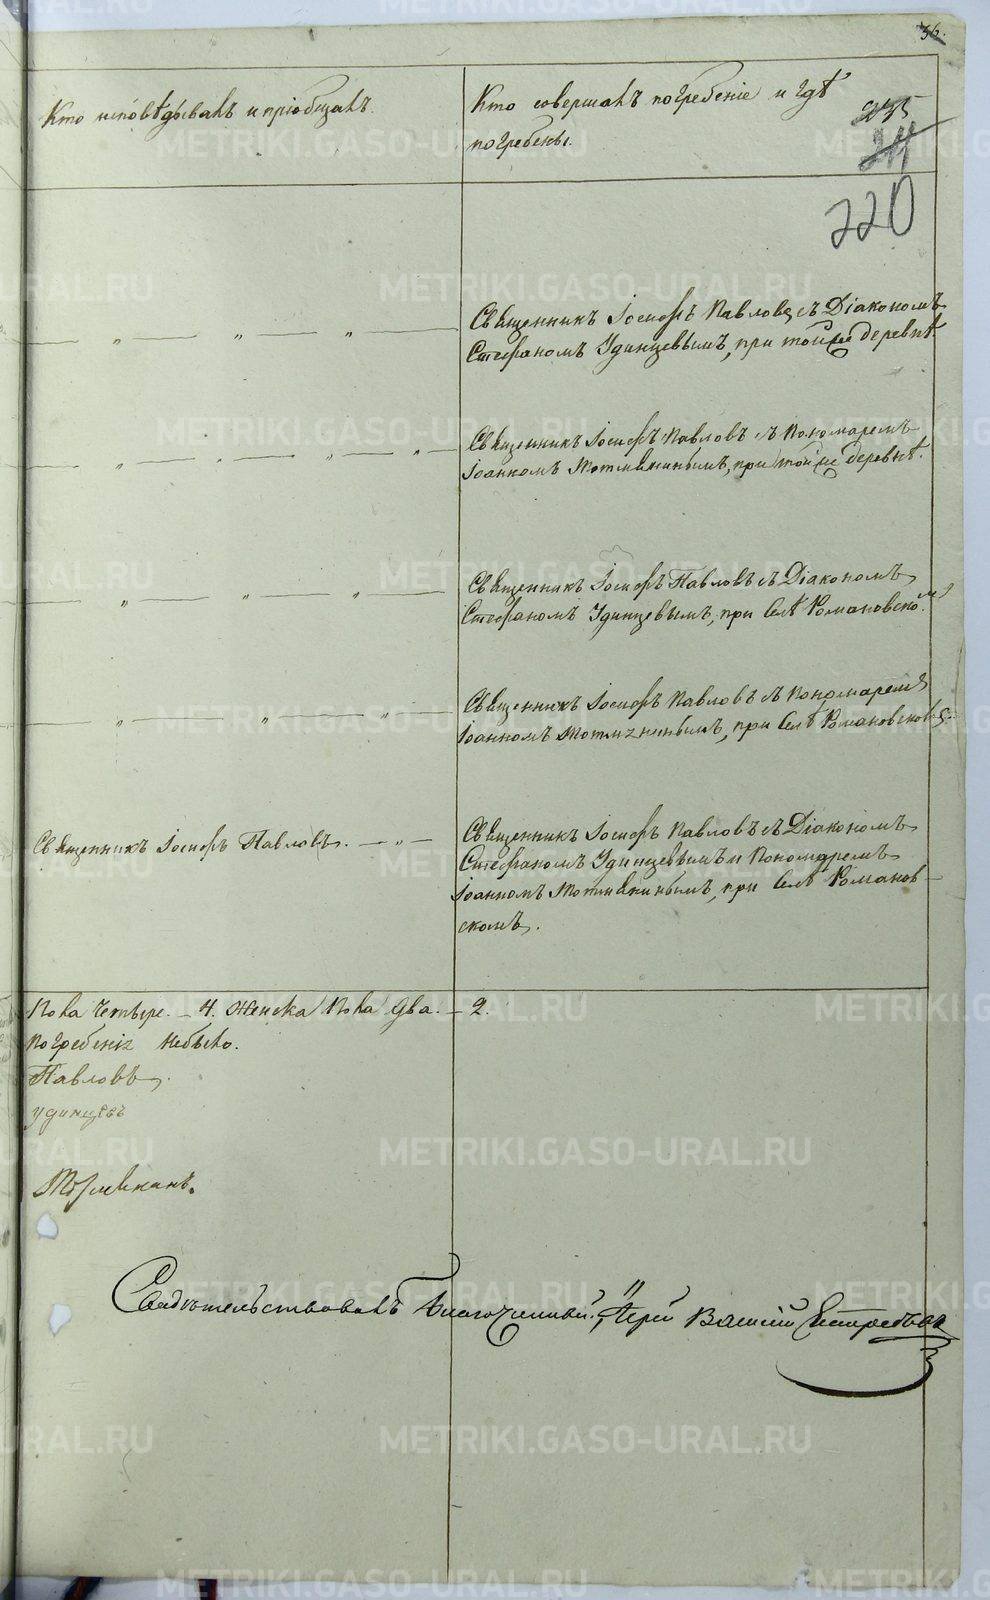 36.
Кто исповѣдывалъ и пріобщалъ.
Кто совершалъ погребеніе и гдѣ
погребены.
235
211
220
Священникъ Іосифъ Павловъ съ Діакономъ
Стефаномъ Удинцевымъ, при той же деревнѣ.
Священникъ Іосифъ Павловъ съ Пономаремъ
Іоанномъ Мотливкинымъ, при той же деревнѣ.
Священникъ Іосифъ Павловъ съ Діакономъ
Стефаномъ Удинцевымъ, при Селѣ Романовском.
Священникъ Іосифъ Павловъ съ Пономаремъ
Іоанномъ при Селѣ Романовскомъ.
Священникъ Іосифъ Павловъ. — „ —
Священникъ Іосифъ Павловъ съ Діакономъ
Стефаномъ Удинцевымъ и Пономаремъ
Іоанномъ при Селѣ Романов
скомъ.
Пола четыре. — 4. Женска Пола два. — 2.
погребенія небыло.
Павловъ.
Удинцевъ
Свидѣтельствовалъ Благочинный, Іерей Василій
METRIKI.GASO-URAL.RU